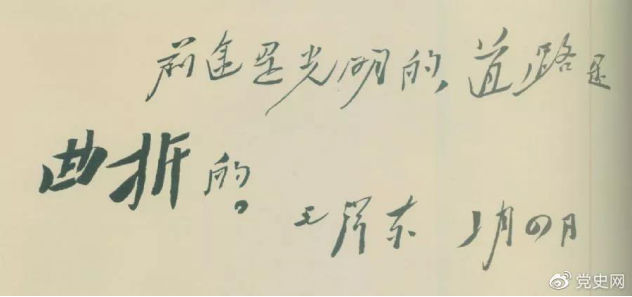 前途是光明的,道路是
曲折的。
毛泽东 月四日
@党史网